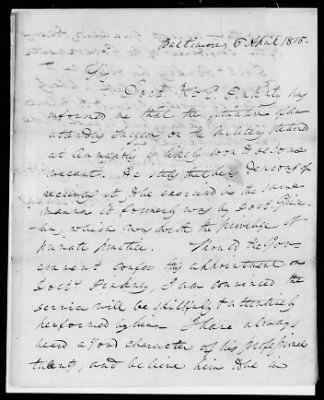 Baltimore 6 April 1815
Sir
Doct. Wm P. has
informed me that the situation of the
attending Surgeon on the Military
at Annapolis, which would become
vacant. He states that he is desirous of
receiving it to be exercised in the same
manner it formerly was by Doct.
which was with the privilege of
private practice. Should the Gov-
ernment confer this appointment on
Doct. I am convinced the
service will be skillfully & attentively
performed by him. I have always
heard a good character of his professional
talent, and believe him to be in